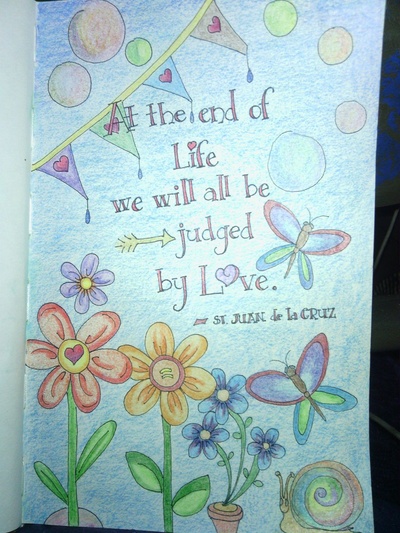 At the end of
Life
we will all be
judged
by Love.
- ST. JUAN de la CRUZ